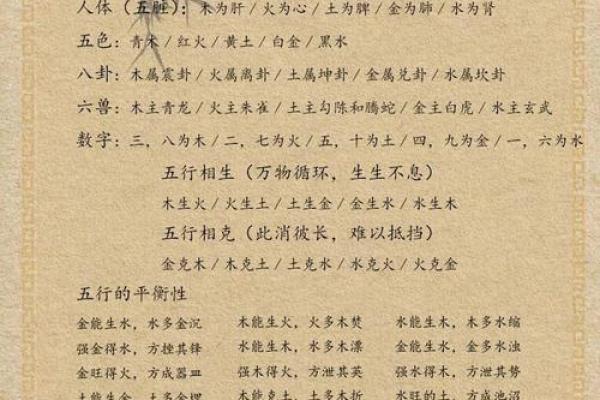 人体（五脏）：木为肝 / 火为心 / 土为脾 / 金为肺 / 水为肾
五色：青木 / 红火 / 黄土 / 白金 / 黑水
八卦：木属震卦 / 火属离卦 / 土属坤卦 / 金属兑卦 / 水属坎卦
六兽：木主青龙 / 火主朱雀 / 土主勾陈和腾蛇 / 金主白虎 / 水主玄武
数字：三，八为木 / 二，七为火 / 五，十为土 / 四，九为金 / 一，六为水
五行相生（万物循环，生生不息）
木生火 / 火生土 / 土生金 / 金生水 / 水生木
五行相克（此消彼长，难以抵挡）
金克木 / 木克土 / 土克水 / 水克火 / 火克金
五行的平衡性
金能生水，水多金沉 木能生火，火多木焚 水能生木，木多水缩
强金得水，方挫其锋 水能生木，水多木漂 金能生水，金多水浊
金旺得火，方成器皿 强木得火，方泄其英 强水得木，方泄其势
土能生金，土多金埋 木能克土，土多木折 水旺的土，方成池沼